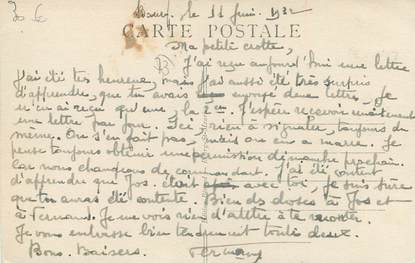 le 11 Juin 1932
CARTE POSTALE
Ma petite crotte,
J'ai reçu aujourd'hui une lettre
J'ai été très heureux, mais j'ai aussi été très surpris
d'apprendre, que tu avais envoyé deux lettre, je
n'en ai reçu qu'une, la 2em. J'espère recevoir maintenant
une lettre par jour. Ici, rien à signaler, toujours du
même. On s'en fait pas, mais on en a marre. Je
pense toujours obtenir une permission dimanche prochain.
Car nous changeons de commandant. J'ai été content
d'apprendre que Jos. était avec toi, je suis sûre
que tu auras été contente. Bien des choses à Jos et
à Fernand. Je ne vois rien d'autre à te
Je vous embrasse bien tendrement toutes deux.
Bons Baisers.